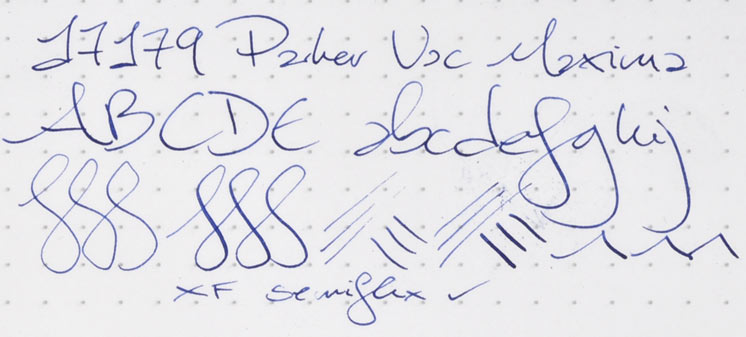 17179 Parker Vac Maxima
ABCDE abcdefghij
XF semiflex ✓